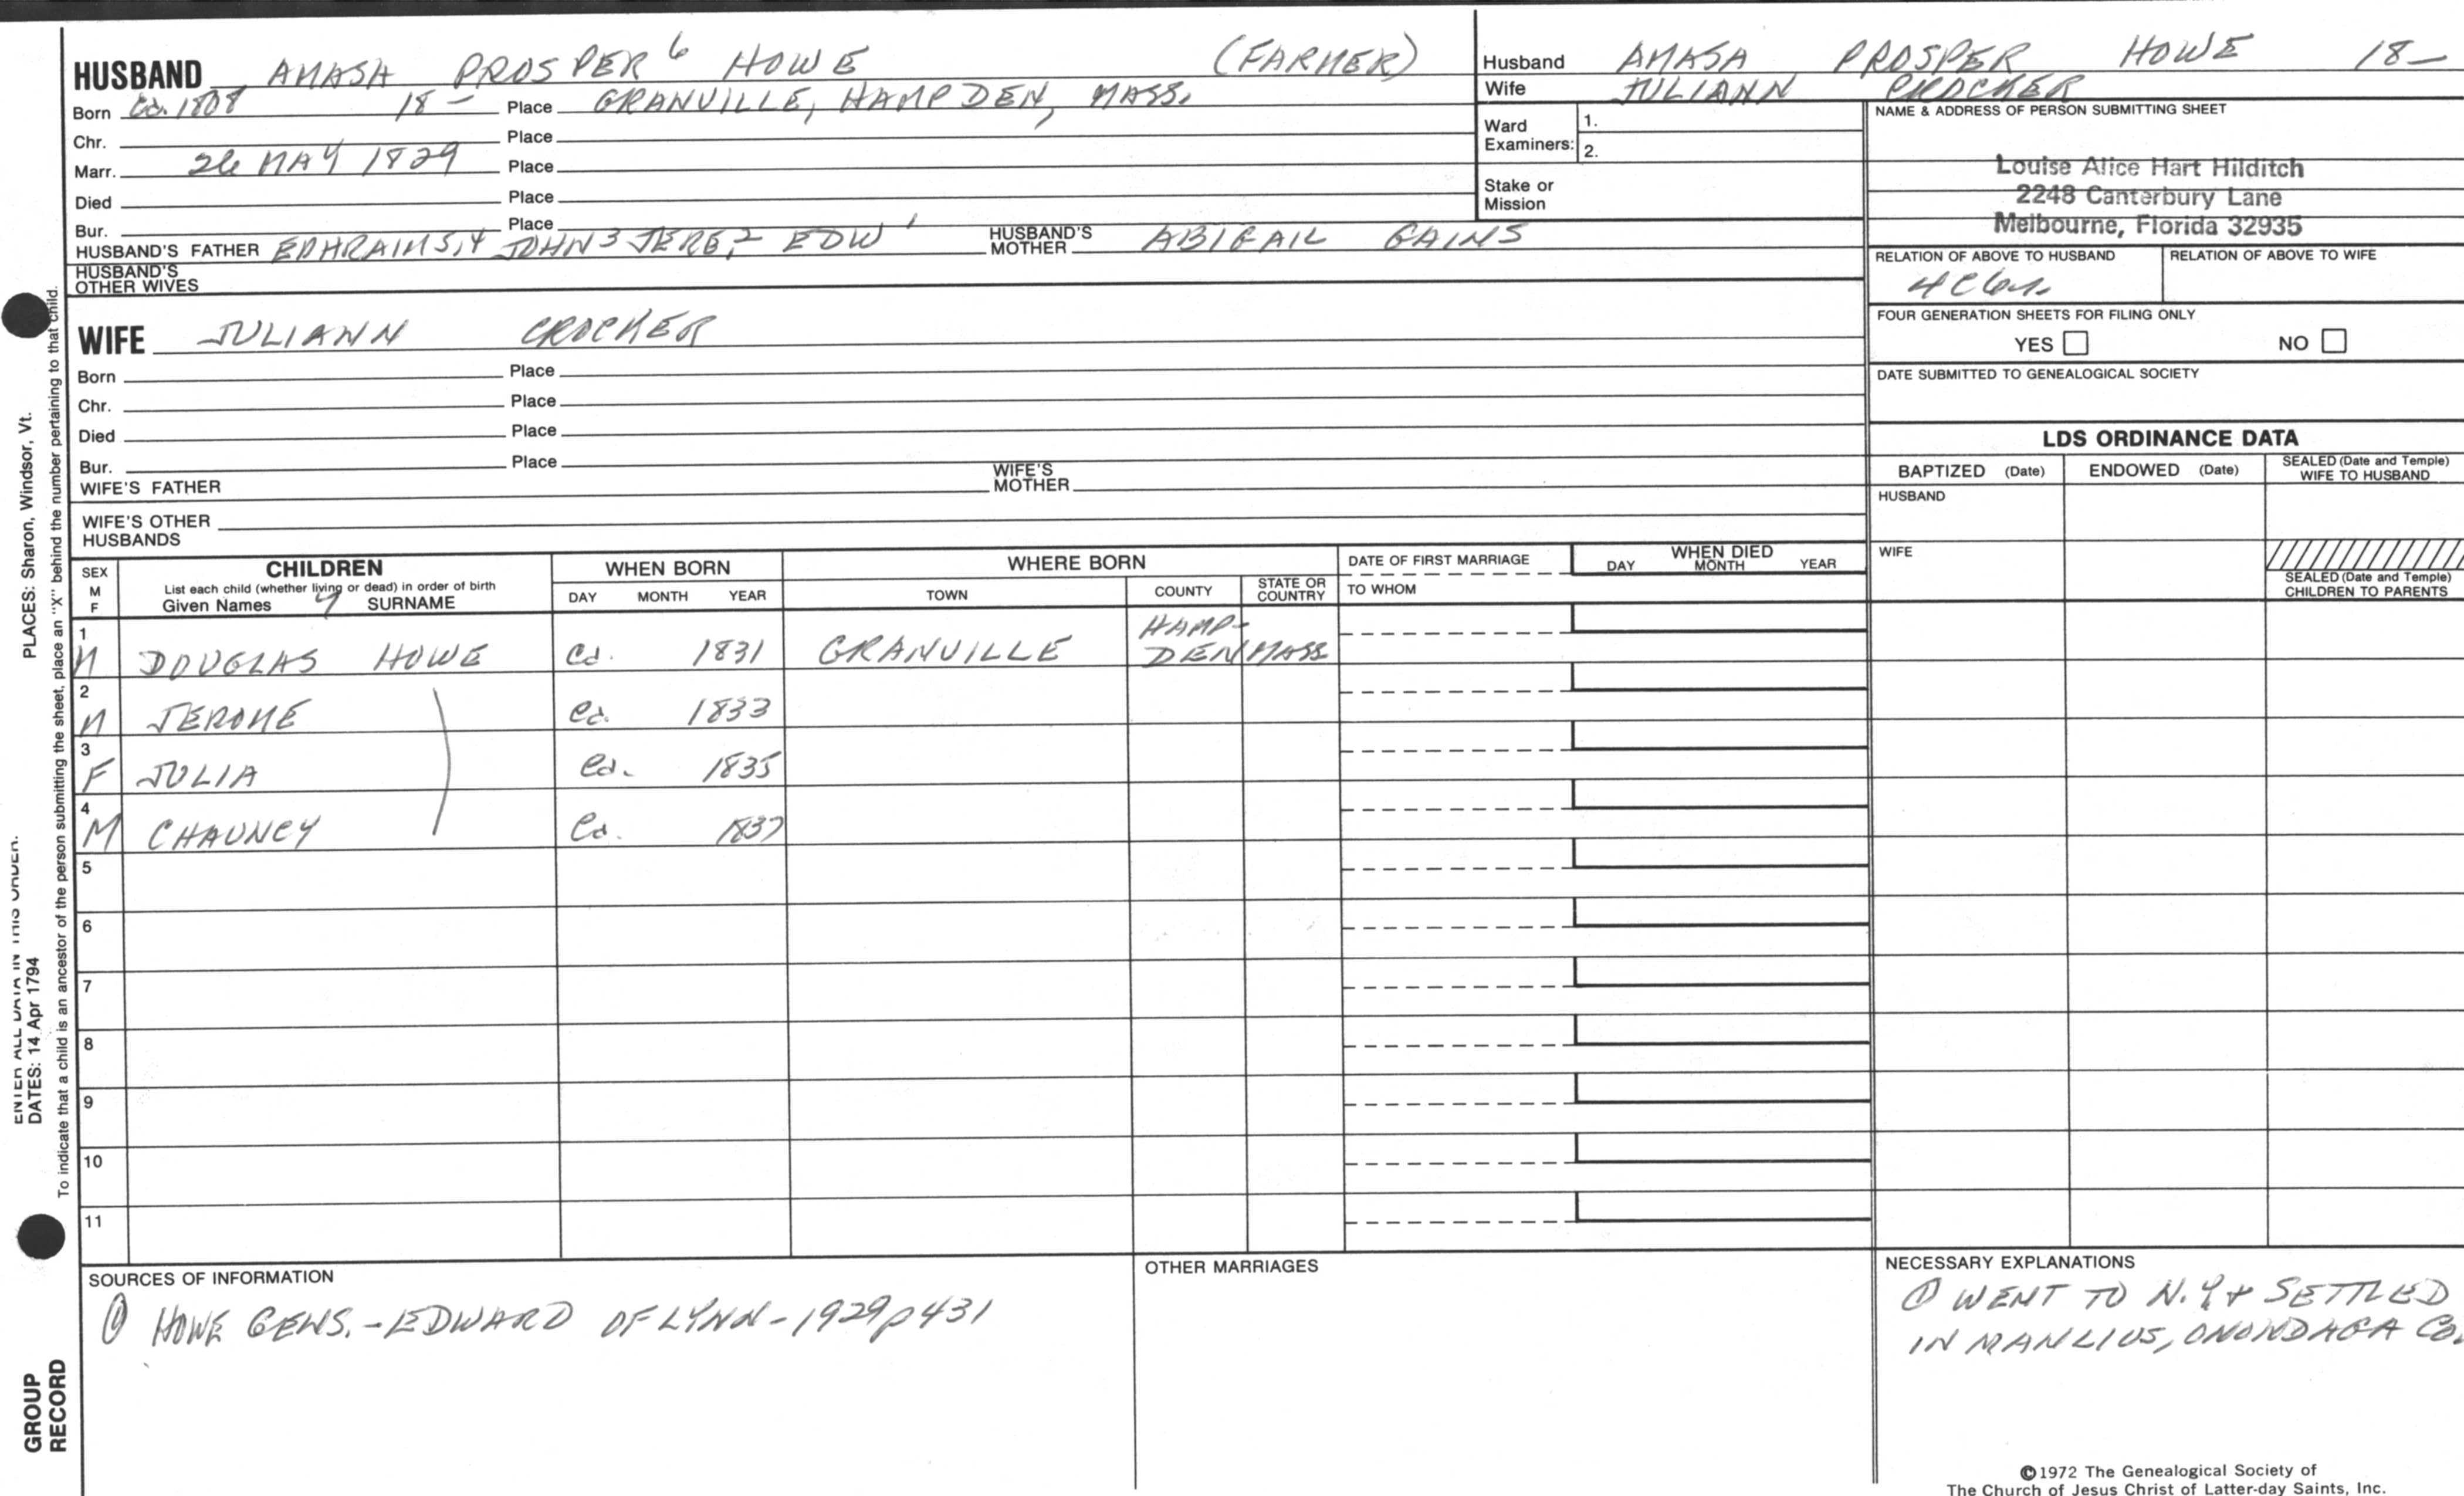 HUSBAND AMASA PROSPER 6 HOWE (FARMER)
Born Ca. 1808 18— Place GRANVILLE, HAMPDEN, MASS.
Chr. Place
Marr. 26 MAY 1829 Place
Died Place
Bur. Place
HUSBAND'S FATHER EPHRAIM 5,4 JOHN 3 JERE, 2 EDW 1 HUSBAND'S MOTHER ABIGAIL GAINS
HUSBAND'S OTHER WIVES
Husband AMASA PROSPER HOWE 18—
Wife JULIANN CROCKER
Ward Examiners: 1.
2.
Stake or Mission
NAME & ADDRESS OF PERSON SUBMITTING SHEET
Louise Alice Hart Hilditch
2248 Canterbury Lane
Melbourne, Florida 32935
RELATION OF ABOVE TO HUSBAND RELATION OF ABOVE TO WIFE
FOUR GENERATION SHEETS FOR FILING ONLY
YES NO
DATE SUBMITTED TO GENEALOGICAL SOCIETY
WIFE JULIANN CROCKER
Born Place
Chr. Place
Died Place
Bur. Place
WIFE'S FATHER WIFE'S MOTHER
WIFE'S OTHER HUSBANDS
LDS ORDINANCE DATA
BAPTIZED (Date) ENDOWED (Date) SEALED (Date and Temple) WIFE TO HUSBAND
HUSBAND
WIFE
SEALED (Date and Temple) CHILDREN TO PARENTS
SEX M F
CHILDREN
List each child (whether living or dead) in order of birth
Given Names SURNAME
WHEN BORN
DAY MONTH YEAR
WHERE BORN
TOWN COUNTY STATE OR COUNTRY
DATE OF FIRST MARRIAGE
TO WHOM
WHEN DIED
DAY MONTH YEAR
1 M DOUGLAS HOWE Ca. 1831 GRANVILLE HAMP-DEN MASS
2 M JEROME Ca. 1833
3 F JULIA Ca. 1835
4 M CHAUNCY Ca. 1837
5
6
7
8
9
10
11
SOURCES OF INFORMATION
① HOWE GENS. - EDWARD OF LYNN - 1929 p 431
OTHER MARRIAGES
NECESSARY EXPLANATIONS
① WENT TO N.Y. + SETTLED
IN MANLIUS, ONONDAGA CO.
©1972 The Genealogical Society of
The Church of Jesus Christ of Latter-day Saints, Inc.
ENTER ALL DATA IN THIS ORDER:
DATES: 14 Apr 1794 PLACES: Sharon, Windsor, Vt.
To indicate that a child is an ancestor of the person submitting the sheet, place an "X" behind the number pertaining to that child.
GROUP
RECORD